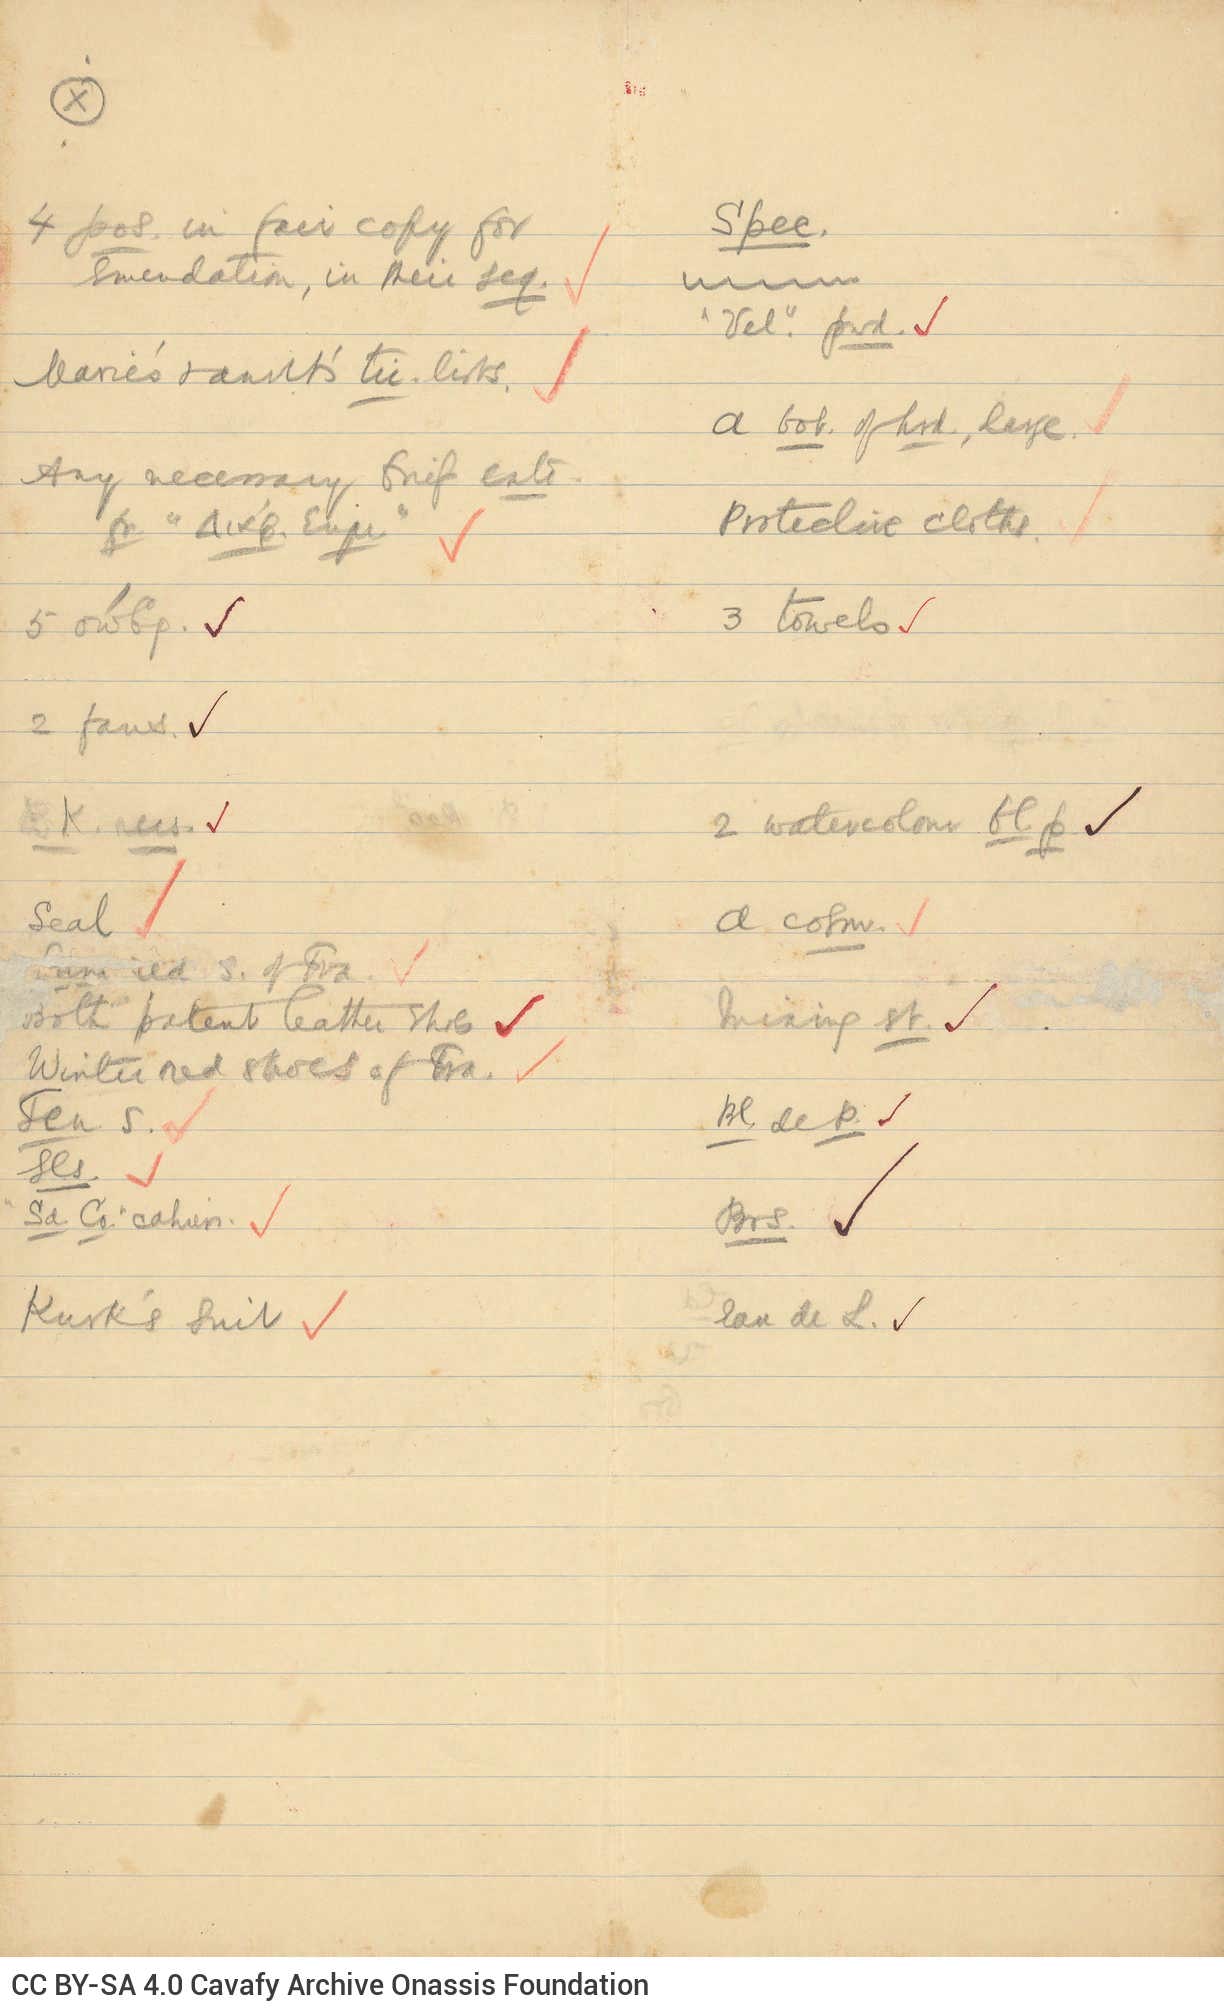 X
4 pos. in fair copy for
emendation, in their seq.
Marie's & aunt's tii. lists.
Any necessary brief
for
5 σώβρ.
2 fans.
K.
Seal
red s. of Fra.
Both patent leather shoes
Winter red shoes of Fra.
Ten s.
Sls.
"Sd. Co." cahiers.
Kurk's suit
Spec.
"Vel". pwd.
a bot. of hrd., large.
Protective cloths.
3 towels
2 watercolour bl. p
a cosm.
Mixing st.
Bl. de P.
Brs.
Eau de L.
CC BY-SA 4.0 Cavafy Archive Onassis Foundation